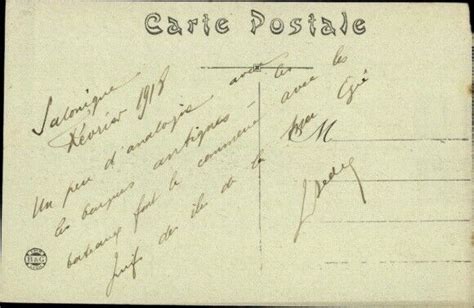 Carte Postale
Salonique
Février 1918
Un peu d'analogie avec les
les barques antiques – ces
bateaux font le commerce avec les
Juifs des îles de la mer Egée
M
B&G